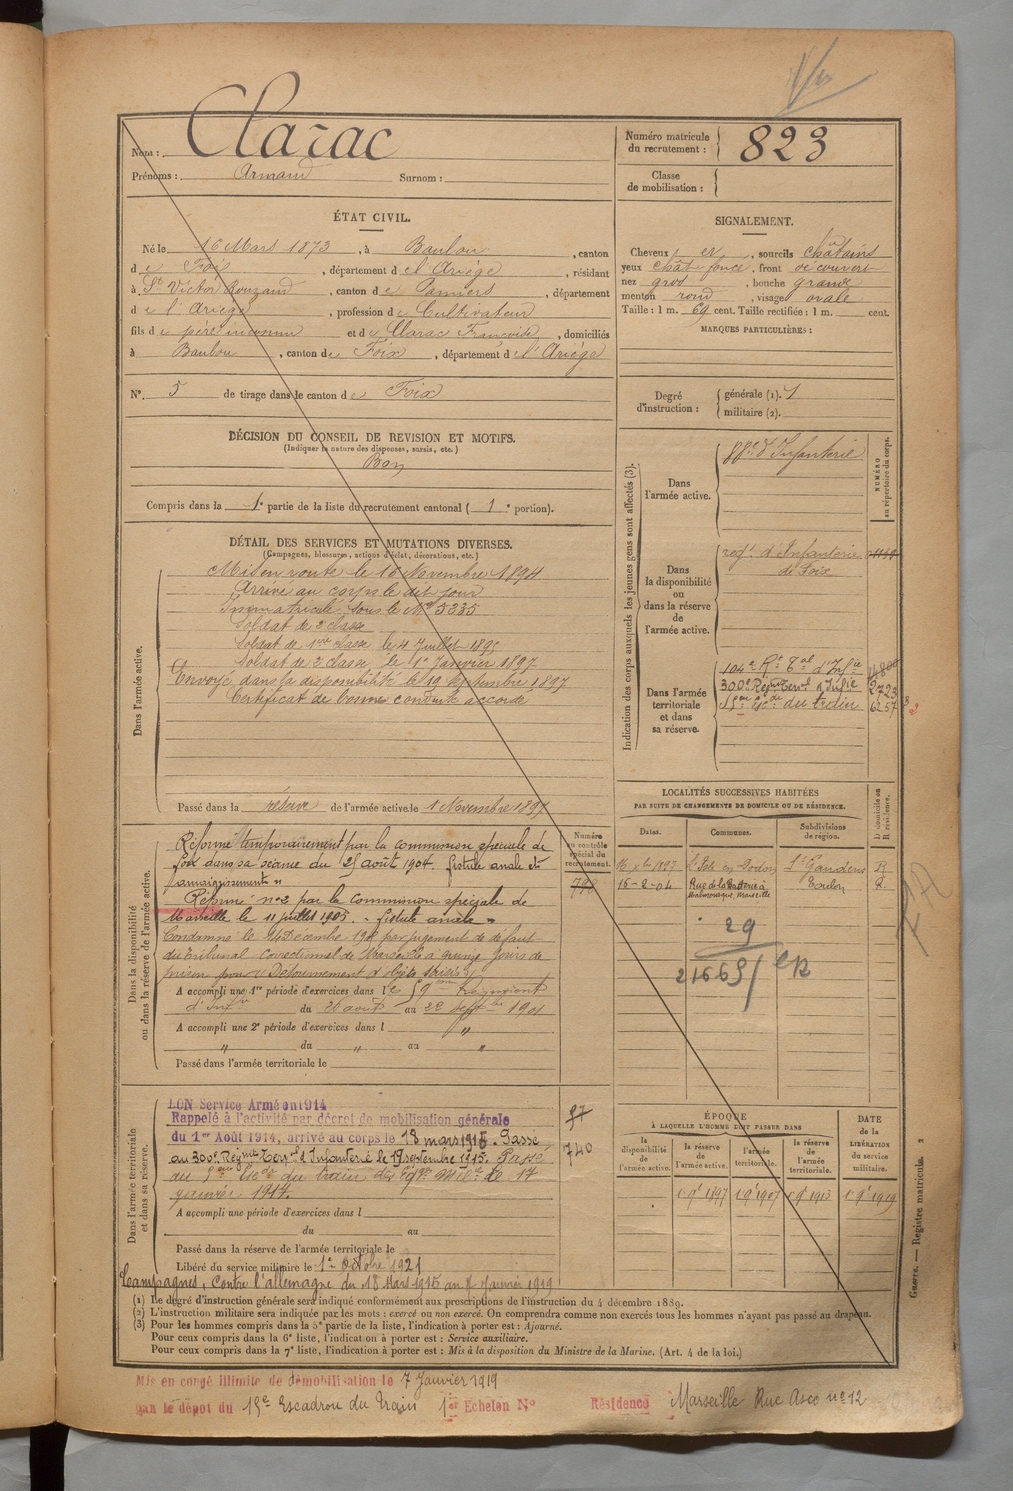 Nom : Clarac
Prénoms : Armand Surnom :
Numéro matricule du recrutement : 823
Classe de mobilisation :
ÉTAT CIVIL.
Né le 16 Mars 1873, à Baulou, canton
de Foix, département de l'Ariège, résidant
à St Victor Rouzaud, canton de Pamiers, département
de l'Ariège, profession de Cultivateur
fils de père inconnu et de Clarac Françoise, domiciliés
à Baulou, canton de Foix, département de l'Ariège
SIGNALEMENT.
Cheveux et, sourcils châtains
yeux chât foncé, front découvert
nez gros, bouche grande
menton rond, visage ovale
Taille : 1 m. 69 cent. Taille rectifiée : 1 m. cent.
MARQUES PARTICULIÈRES :
N° 5 de tirage dans le canton de Foix
Degré d'instruction : générale (1). 1
militaire (2).
DÉCISION DU CONSEIL DE REVISION ET MOTIFS.
(Indiquer la nature des dispenses, sursis, etc.)
Bon
Compris dans la 1e partie de la liste du recrutement cantonal (1e portion).
DÉTAIL DES SERVICES ET MUTATIONS DIVERSES.
(Campagnes, blessures, actions d'éclat, décorations, etc.)
Dans l'armée active.
Mis en route le 16 Novembre 1894
Arrivé au corps le dit jour
Immatriculé sous le No 5335
Soldat de 2e classe
Soldat de 1ere classe le 4 Juillet 1895
Soldat de 2 classe le 1er Janvier 1897
Envoyé dans la disponibilité le 19 septembre 1897
Certificat de bonne conduite accordé
Passé dans la réserve de l'armée active le 1 Novembre 1897
Indication des corps auxquels les jeunes gens sont affectés (3).
NUMÉRO au répertoire du corps.
Dans l'armée active.
d'Infanterie
Dans la disponibilité ou dans la réserve de l'armée active.
regt d'Infanterie
de Foix
Dans l'armée territoriale et dans sa réserve.
104e Rt Tal d'Infie
300e Régiment Terrl d'Infie 2723
15eme Esc du train 6257
LOCALITÉS SUCCESSIVES HABITÉES
PAR SUITE DE CHANGEMENTS DE DOMICILE OU DE RÉSIDENCE.
Dates. Communes. Subdivisions de région. D. domicile ou R. résidence.
St Gaudens R
15-2-04 Rue de la Batterie à Malmousque, Marseille Toulon R.
29
21665
Dans la disponibilité ou dans la réserve de l'armée active.
Numéro au contrôle spécial du recrutement.
Réformé temporairement par la commission spéciale de
Foix dans sa séance du 25 août 1904. fistule anale et
amaigrissement "
Réformé no 2 par la commission spéciale de
Marseille le 11 juillet 1905. " fistule anale "
Condamné le 14 Décembre par jugement de défaut
du Tribunal Correctionnel de Marseille à quinze jours de
prison pour " Détournement d'objets saisis "
A accompli une 1re période d'exercices dans le 59eme Régiment
d'Infie du 26 août au 22 septbre 1901
A accompli une 2e période d'exercices dans l "
" du " au "
Passé dans l'armée territoriale le
Dans l'armée territoriale et dans sa réserve.
BON Service Armé en 1914
Rappelé à l'activité par décret de mobilisation générale
du 1er Août 1914, arrivé au corps le 18 mars 1915. Passé
au 300e Régimt Terrl d'Infanterie le 19 septembre 1915. Passé
au 15eme Escon du train des Eqges Milres le 17
janvier 1917.
97
740
A accompli une période d'exercices dans l
du au
Passé dans la réserve de l'armée territoriale le
Libéré du service militaire le 1er Octobre 1921
Campagnes, Contre l'allemagne du 18 Mars 1915 au Janvier 1919
ÉPOQUE
À LAQUELLE L'HOMME DOIT PASSER DANS
la disponibilité de l'armée active. la réserve de l'armée active. l'armée territoriale. la réserve de l'armée territoriale.
DATE de la LIBÉRATION du service militaire.
1 9e 1897 1 9e 1907 1 9e 1913 1 9e 1919
Guerre. — Registre matricule.
(1) Le degré d'instruction générale sera indiqué conformément aux prescriptions de l'instruction du 4 décembre 1889.
(2) L'instruction militaire sera indiquée par les mots : exercé ou non exercé. On comprendra comme non exercés tous les hommes n'ayant pas passé au drapeau.
(3) Pour les hommes compris dans la 5e partie de la liste, l'indication à porter est : Ajourné.
Pour ceux compris dans la 6e liste, l'indication à porter est : Service auxiliaire.
Pour ceux compris dans la 7e liste, l'indication à porter est : Mis à la disposition du Ministre de la Marine. (Art. 4 de la loi.)
Mis en congé illimité de démobilisation le 7 Janvier 1919
par le dépot du 15e Escadron du Train 1er Echelon No Résidence Marseille Rue Asco no 12